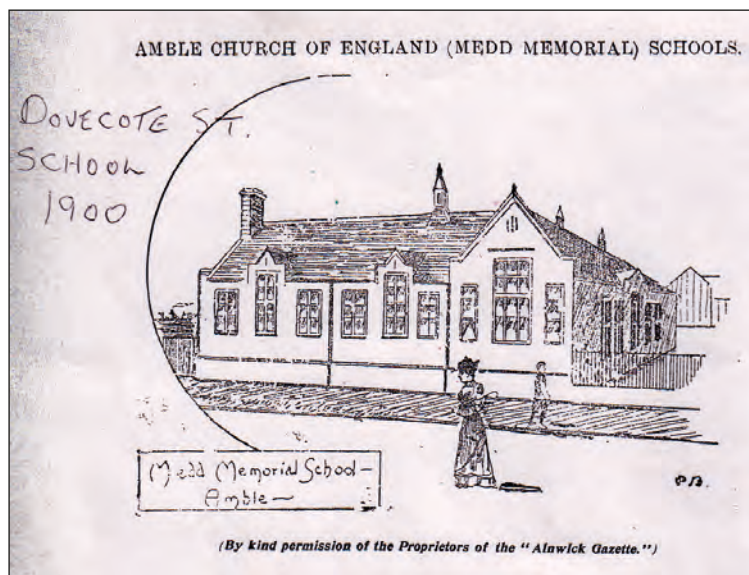 AMBLE CHURCH OF ENGLAND (MEDD MEMORIAL) SCHOOLS.
DOVECOTE ST.
SCHOOL
1900
Medd Memorial School-
Amble-
(By kind permission of the Proprietors of the "Alnwick Gazette.")